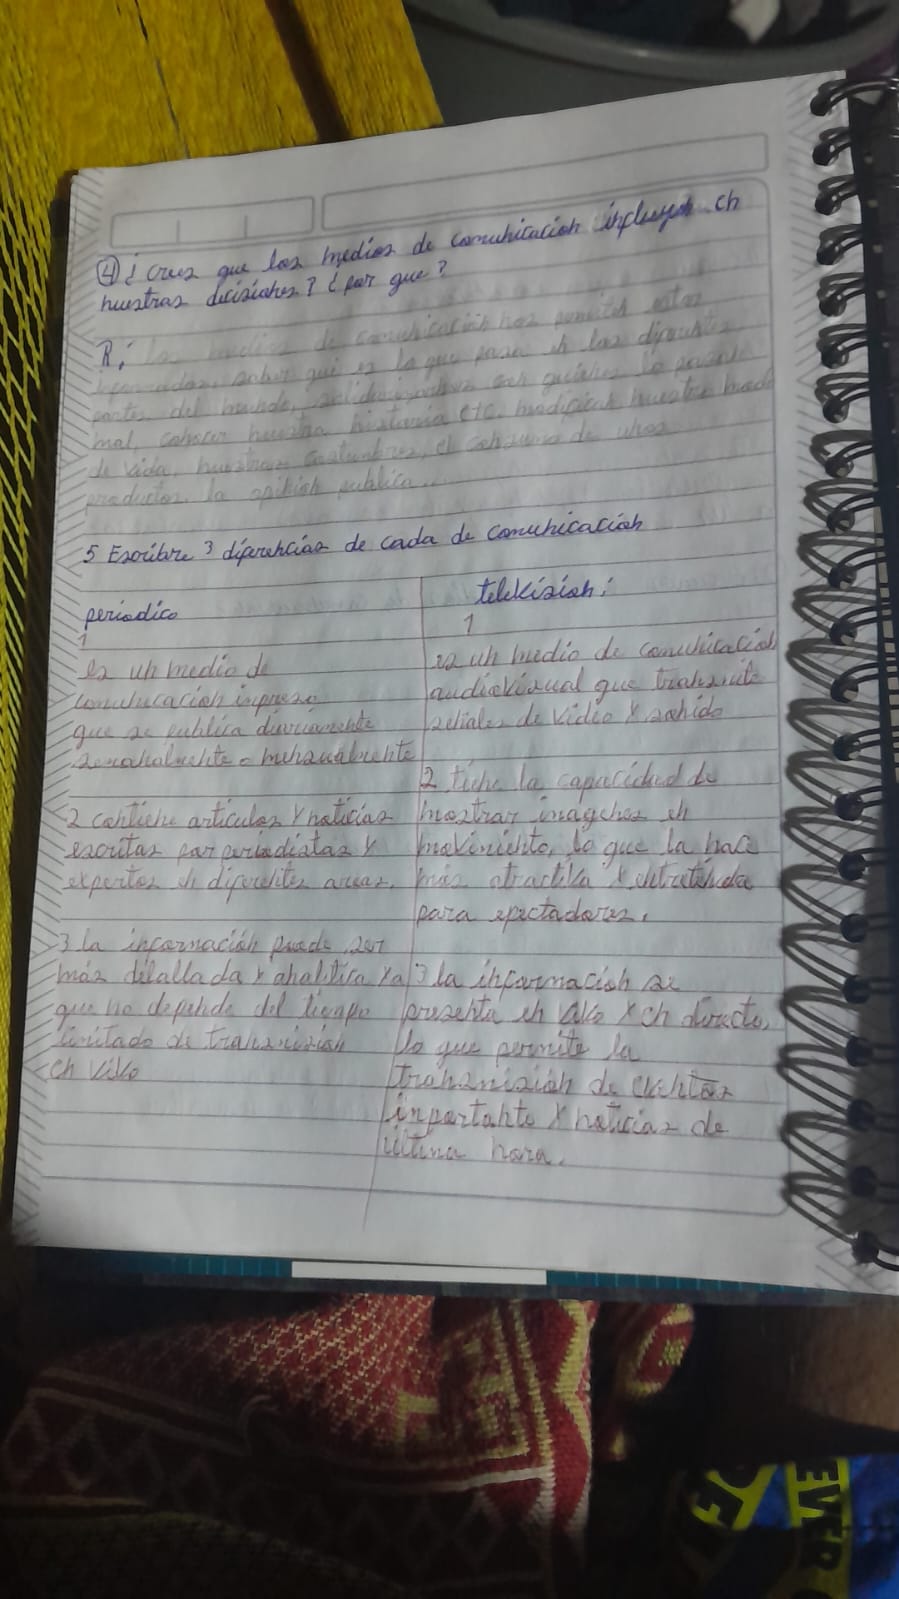 ④ ¿crees que los medios de comunicación influyen en
nuestras decisiones? ¿por que?
R: los medios de comunicación nos permiten estar
informados, saber qué es lo que pasa en las diferentes
partes del mundo, quienes lo pasan
mal, conocer nuestra historia etc. modifican nuestro modo
de vida, nuestras costumbres, el consumo de unos
productos, la opinión publica.
5 Escribre 3 diferencias de cada de comunicación
periodico
1
es un medio de
comunucación impreso
que se publica diariamente
semanalmente o mensualmente
2 contiene articulos y noticias
escritas por periodistas y
expertos en diferentes areas.
3 la incormación puede ser
más detallada y analitica ya
que no depende del tiempo
limitado de transmision
en vivo
television:
1
es un medio de comunicación
audiovisual que transmite
señales de video y sonido
2 tiene la capacidad de
mostrar imagenes en
moviniento, lo que la hace
más atractiva y entretenida
para epectadores.
3 la información se
presenta en vivo y en directo,
lo que permite la
transmisión de eventos
inportante y noticias de
ultima hora.
EVER